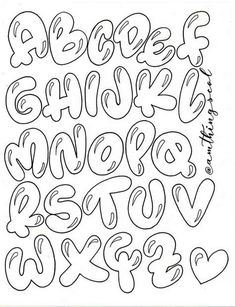 ABCDEF
GHIJKL
MNOPQ
RSTUV
WXYZ
@amthingscool